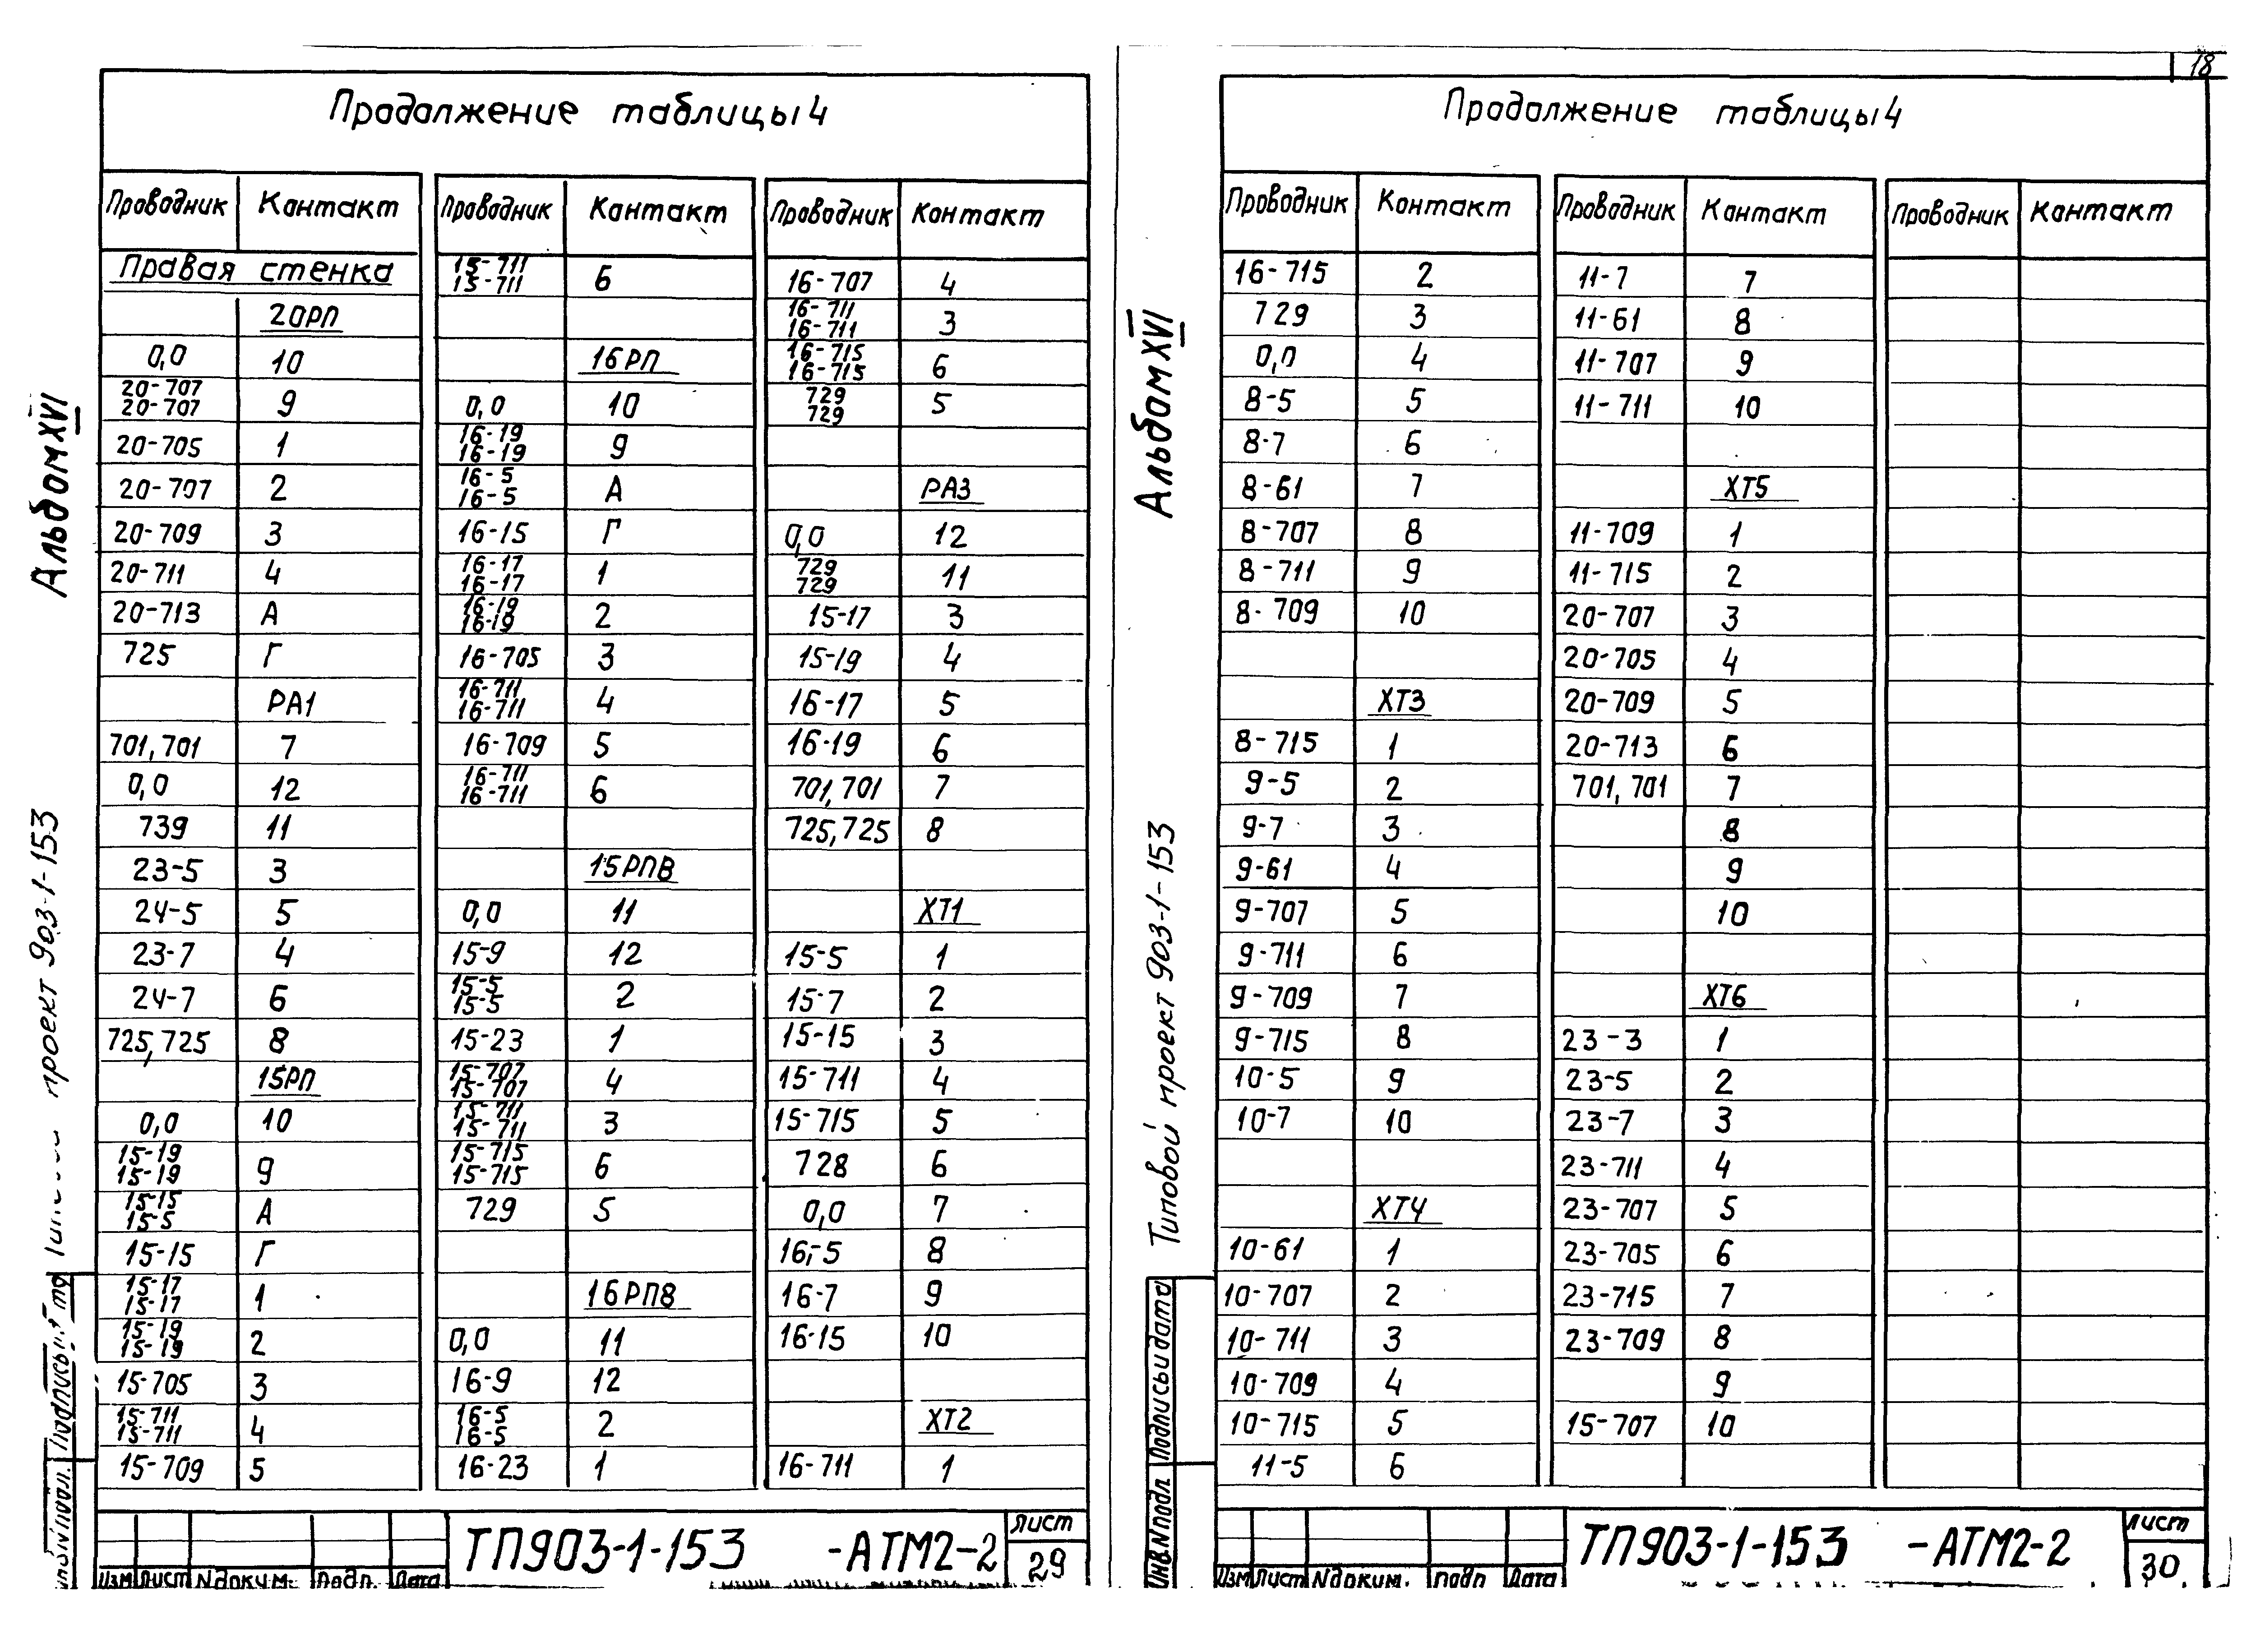 18
Продолжение таблицы 4
Проводник Контакт
Правая стенка
20РП
0,0 10
20-707
20-707 9
20-705 1
20-707 2
20-709 3
20-711 4
20-713 А
725 Г
РА1
701, 701 7
0,0 12
739 11
23-5 3
24-5 5
23-7 4
24-7 6
725, 725 8
15РП
0,0 10
15-19
15-19 9
15-15
15-5 А
15-15 Г
15-17
15-17 1
15-19
15-19 2
15-705 3
15-711
15-711 4
15-709 5
Проводник Контакт
15-711
15-711 6
16РП
0,0 10
16-19
16-19 9
16-5
16-5 А
16-15 Г
16-17
16-17 1
16-19
16-19 2
16-705 3
16-711
16-711 4
16-709 5
16-711
16-711 6
15РПВ
0,0 11
15-9 12
15-5
15-5 2
15-23 1
15-707
15-707 4
15-711
15-711 3
15-715
15-715 6
729 5
16РПВ
0,0 11
16-9 12
16-5
16-5 2
16-23 1
Проводник Контакт
16-707 4
16-711
16-711 3
16-715
16-715 6
729
729 5
РА3
0,0 12
729
729 11
15-17 3
15-19 4
16-17 5
16-19 6
701, 701 7
725, 725 8
ХТ1
15-5 1
15-7 2
15-15 3
15-711 4
15-715 5
728 6
0,0 7
16-5 8
16-7 9
16-15 10
ХТ2
16-711 1
Альбом XVI
проект 903-1-153
Изм Лист N докум. Подп. Дата
ТП903-1-153 -АТМ2-2
Лист
29
Продолжение таблицы 4
Проводник Контакт
16-715 2
729 3
0,0 4
8-5 5
8-7 6
8-61 7
8-707 8
8-711 9
8-709 10
ХТ3
8-715 1
9-5 2
9-7 3
9-61 4
9-707 5
9-711 6
9-709 7
9-715 8
10-5 9
10-7 10
ХТ4
10-61 1
10-707 2
10-711 3
10-709 4
10-715 5
11-5 6
Проводник Контакт
11-7 7
11-61 8
11-707 9
11-711 10
ХТ5
11-709 1
11-715 2
20-707 3
20-705 4
20-709 5
20-713 6
701, 701 7
8
9
10
ХТ6
23-3 1
23-5 2
23-7 3
23-711 4
23-707 5
23-705 6
23-715 7
23-709 8
9
15-707 10
Проводник Контакт
Альбом XVI
Типовой проект 903-1-153
Подпись и дата
Инв. N подл.
Изм Лист N докум. Подп Дата
ТП903-1-153 -АТМ2-2
Лист
30